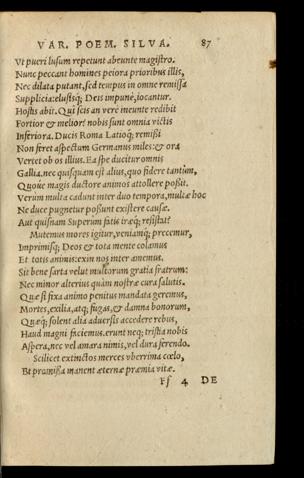 VAR. POEM. SILVA. 87
Vt pueri lusum repetunt abeunte magistro.
Nunc peccant homines peiora prioribus illis,
Nec dilata putant, sed tempus in omne remissa
Supplicia: elustsq́; Deis impunè, iocantur.
Hostis abit. Qui scis an vere ineunte redibit
Fortior & melior? nobis sunt omnia victis
Inferiora. Ducis Roma Latioq́; remissi
Non feret aspectum Germanus miles: & ora
Vertet ob os illius. Ea spe ducitur omnis
Gallia. nec quisquam est alius, quo fidere tantùm,
Quoúe magis ductore animos attollere possit.
Verùm multa cadunt inter duo tempora, multae hoc
Ne duce pugnetur possunt existere causae.
Aut quisnam Superûm fatis iraeq́; resistat?
Mutemus mores igitur, veniamq́; precemur,
Imprimisq́; Deos & tota mente colamus
Et totis animis: exin nos inter amemus.
Sit bene sarta velut multorum gratia fratrum:
Nec minor alterius quàm nostrae cura salutis.
Quae si fixa animo penitus mandata geremus,
Mortes, exilia, atq; fugas, & damna bonorum,
Quaeq́; solent alia aduersis accedere rebus,
Haud magni faciemus. erunt neq; tristia nobis
Aspera, nec vel amara nimis, vel dura ferendo.
Scilicet extinctos merces vberrima coelo,
Et promissa manent aeternae praemia vitae.
Ff 4 DE